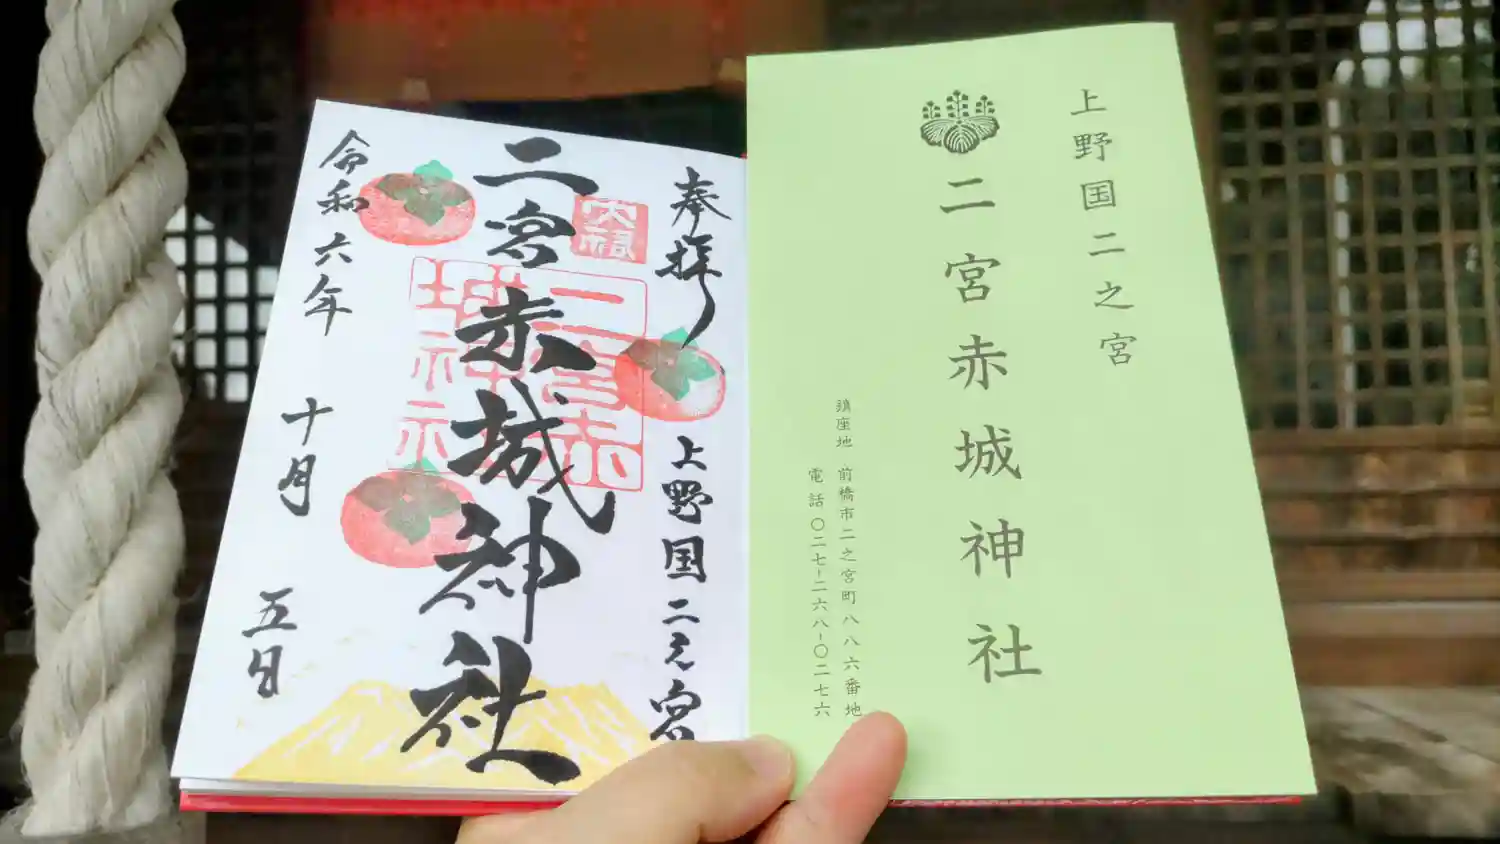 上野国二之宮
二宮赤城神社
鎮座地 前橋市二之宮町八八六番地
電話〇二七-二六八-〇二七六
奉拝
上野国 二之宮
二宮赤城神社
令和六年 十月 五日
二宮赤
城神社